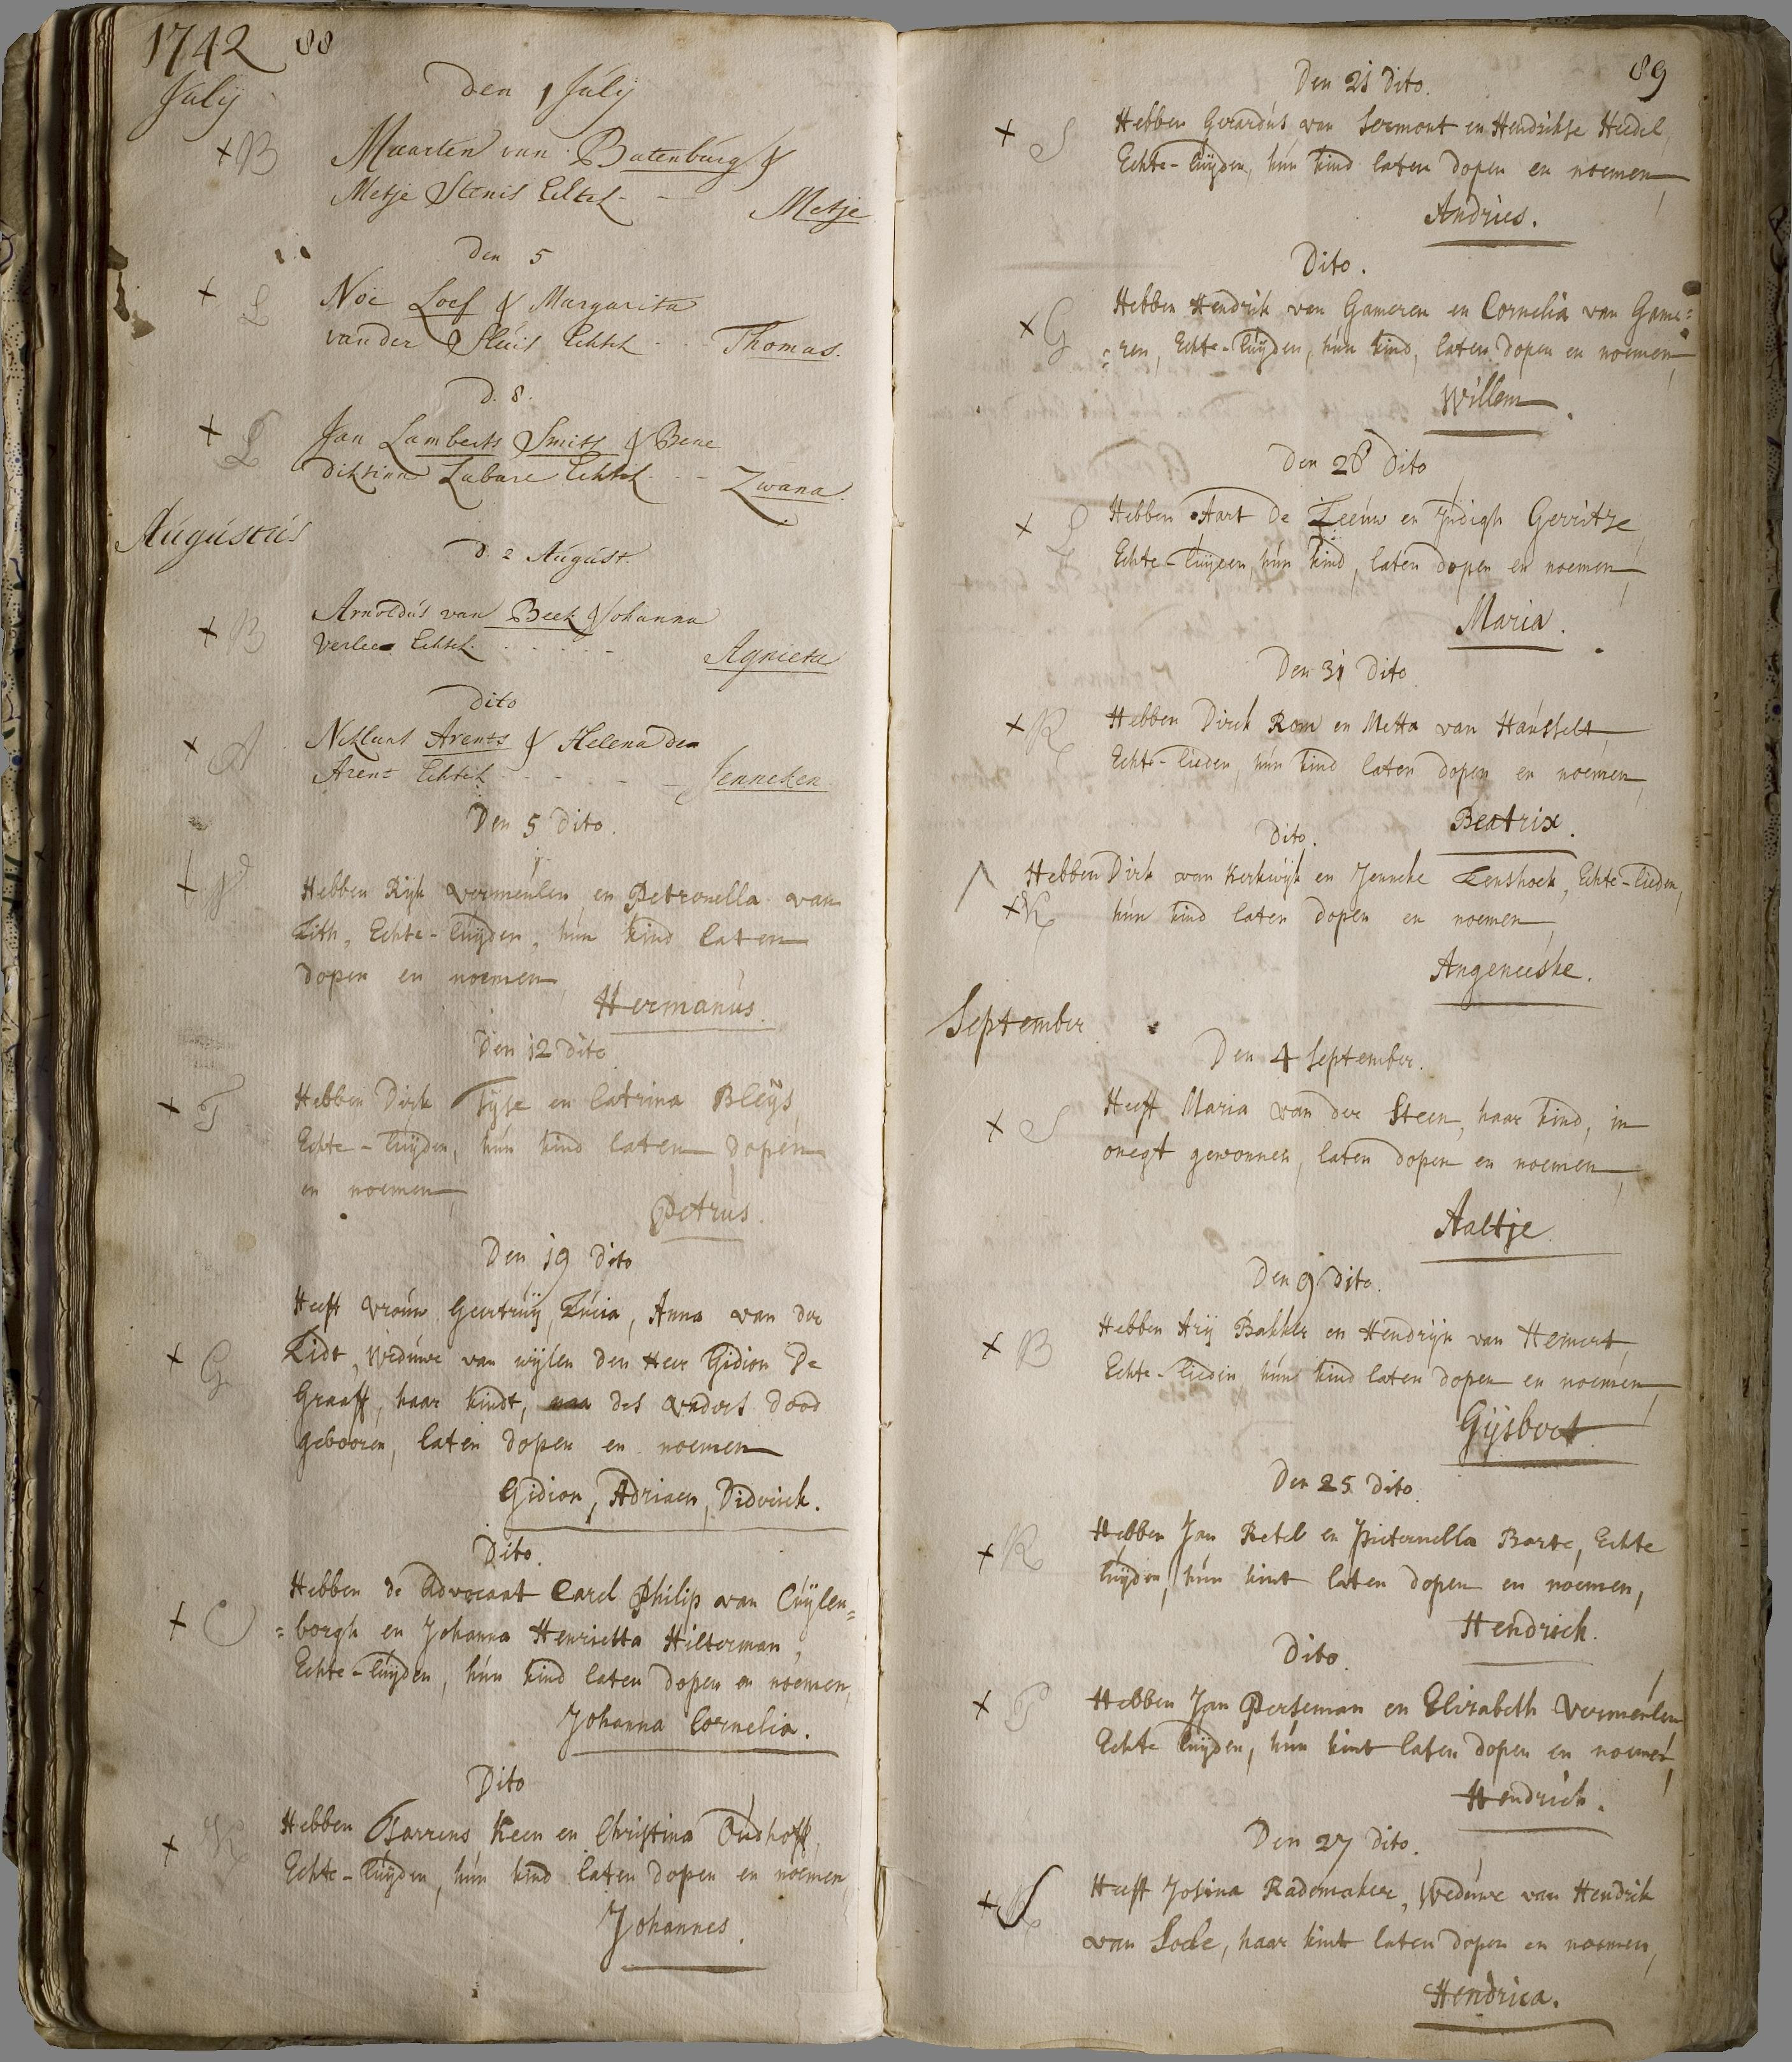 1742 88
Julij
Den 1 Julij
+ B Maarten van Batenburg &
Metje Stenis Echtel - - Metje
Den 5
+ L Noë Loef & Margarita
van der Sluis Echtel - - Thomas.
D. 8.
+ L Jan Lamberts Smits & Bene
diktina Labare Echtel - - Zwana.
Augustus
D. 2 August.
+ B Arnoldus van Beek & Johanna
Verlee Echtel. - Agnieta
dito
+ A Niklaas Arents & Helena den
Arent Echtel - - - Jenneken.
Den 5 Dito.
+ V Hebben Rijk Vermeulen en Petronella van
Lith, Echte-luijden, hun kind laten
dopen en noemen,
Hermanus.
Den 12 Dito
+ T Hebben Dirk Tijse en Catrina Bleijs
Echte-luijden, hun kind laten dopen
en noemen,
Petrus.
Den 19 Dito
Heeft Vrouw Geertruij, Lucia, Anna van der
+ G Lidt, Weduwe van wijlen den Heer Gidion De
Graaff, haar kindt, naa des vaders dood
gebooren, laten dopen en noemen
Gidion, Adriaen, Diderick.
Dito.
Hebben de Advocaat Carel Philip van Cuijlen=
+ C =borgh en Johanna Henrietta Hilterman,
Echte-luijden, hun kind laten dopen en noemen,
Johanna Cornelia.
Dito
+ K Hebben Barrens Keen en Christina Oudhoff,
Echte-luijden, hun kind laten dopen en noemen,
Johannes.
89
Den 21 Dito.
+ S Hebben Gerardus van Sermont en Hendrikse Heedel,
Echte-luijden, hun kind laten dopen en noemen,
Andries.
Dito.
Hebben Hendrik van Gameren en Cornelia van Game=
+ G =ren, Echte-luijden, hun kind, laten dopen en noemen,
Willem.
Den 26 Dito
+ L Hebben Aart De Leeuw en Judigh Gerritze,
Echte-luijden, hun kind, laten dopen en noemen,
Maria.
Den 31 Dito
+ R Hebben Dirck Rom en Metta van Hausselt,
Echte-lieden, hun kind laten dopen en noemen,
Beatrix.
Dito.
Hebben Dirk van Kerkwijk en Jenneke Eenshoek, Echte-lieden,
+ K hun kind laten dopen en noemen,
Angeneeske.
September
Den 4 September.
+ S Heeft Maria van der Steen, haar kind, in
onegt gewonnen, laten dopen en noemen,
Aaltje.
Den 9 Dito.
+ B Hebben Arij Bakker en Hendrijn van Hemert,
Echte-lieden, hun kind laten dopen en noemen,
Gijsbert.
Den 25 Dito.
+ R Hebben Jan Retel en Pieternella Barte, Echte
luijden, hun kint laten dopen en noemen,
Hendrick.
Dito.
+ P Hebben Jan Perseman en Elizabeth Vermeulen
Echte luijden, hun kint laten dopen en noemen,
Hendrick.
Den 27 Dito.
+ S Heeft Josina Rademaker, Weduwe van Hendrik
van Soele, haar kint laten dopen en noemen,
Hendrica.